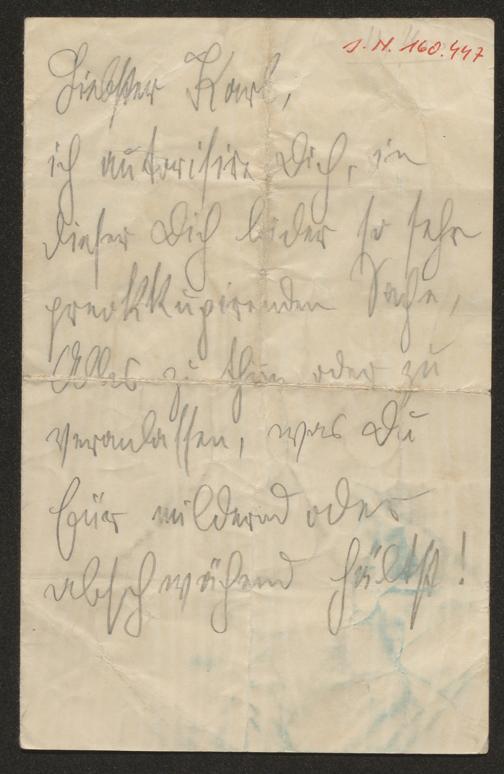 J. N. 160.447
Liebster Karl,
ich autorisire Dich, in
dieser Dich leider so sehr
preokkupirenden Sache,
Alles zu thun oder zu
veranlassen, was Du
für mildernd oder
abschwächend hältst!